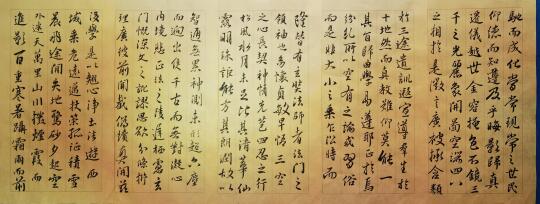 馳而成化當常現常之世民
仰德而知遵及乎晦影歸真
遷儀越世金容掩色不鏡三
千之光麗象開圖空端四八
之相於是微言廣被拯含類
於三途遺訓遐宣導群生於
十地然而真教難仰莫能一
其旨歸曲學易遵邪正於焉
紛糾所以空有之論或習俗
而是非大小之乘乍沿時而
隆替有玄奘法師者法門之
領袖也幼懷貞敏早悟三空
之心長契神情先苞四忍之行
松風水月未足比其清華仙
露明珠詎能方其朗潤故以
智通無累神測未形超六塵
而迥出隻千古而無對凝心
內境悲正法之陵遲栖慮玄
門慨深文之訛謬思欲分條析
理廣彼前聞截偽續真開茲
後學是以翹心淨土法遊西
域乘危遠邁杖策孤征積雪
晨飛途間失地驚砂夕起空
外迷天萬里山川撥煙霞而
進影百重寒暑躡霜雨而前